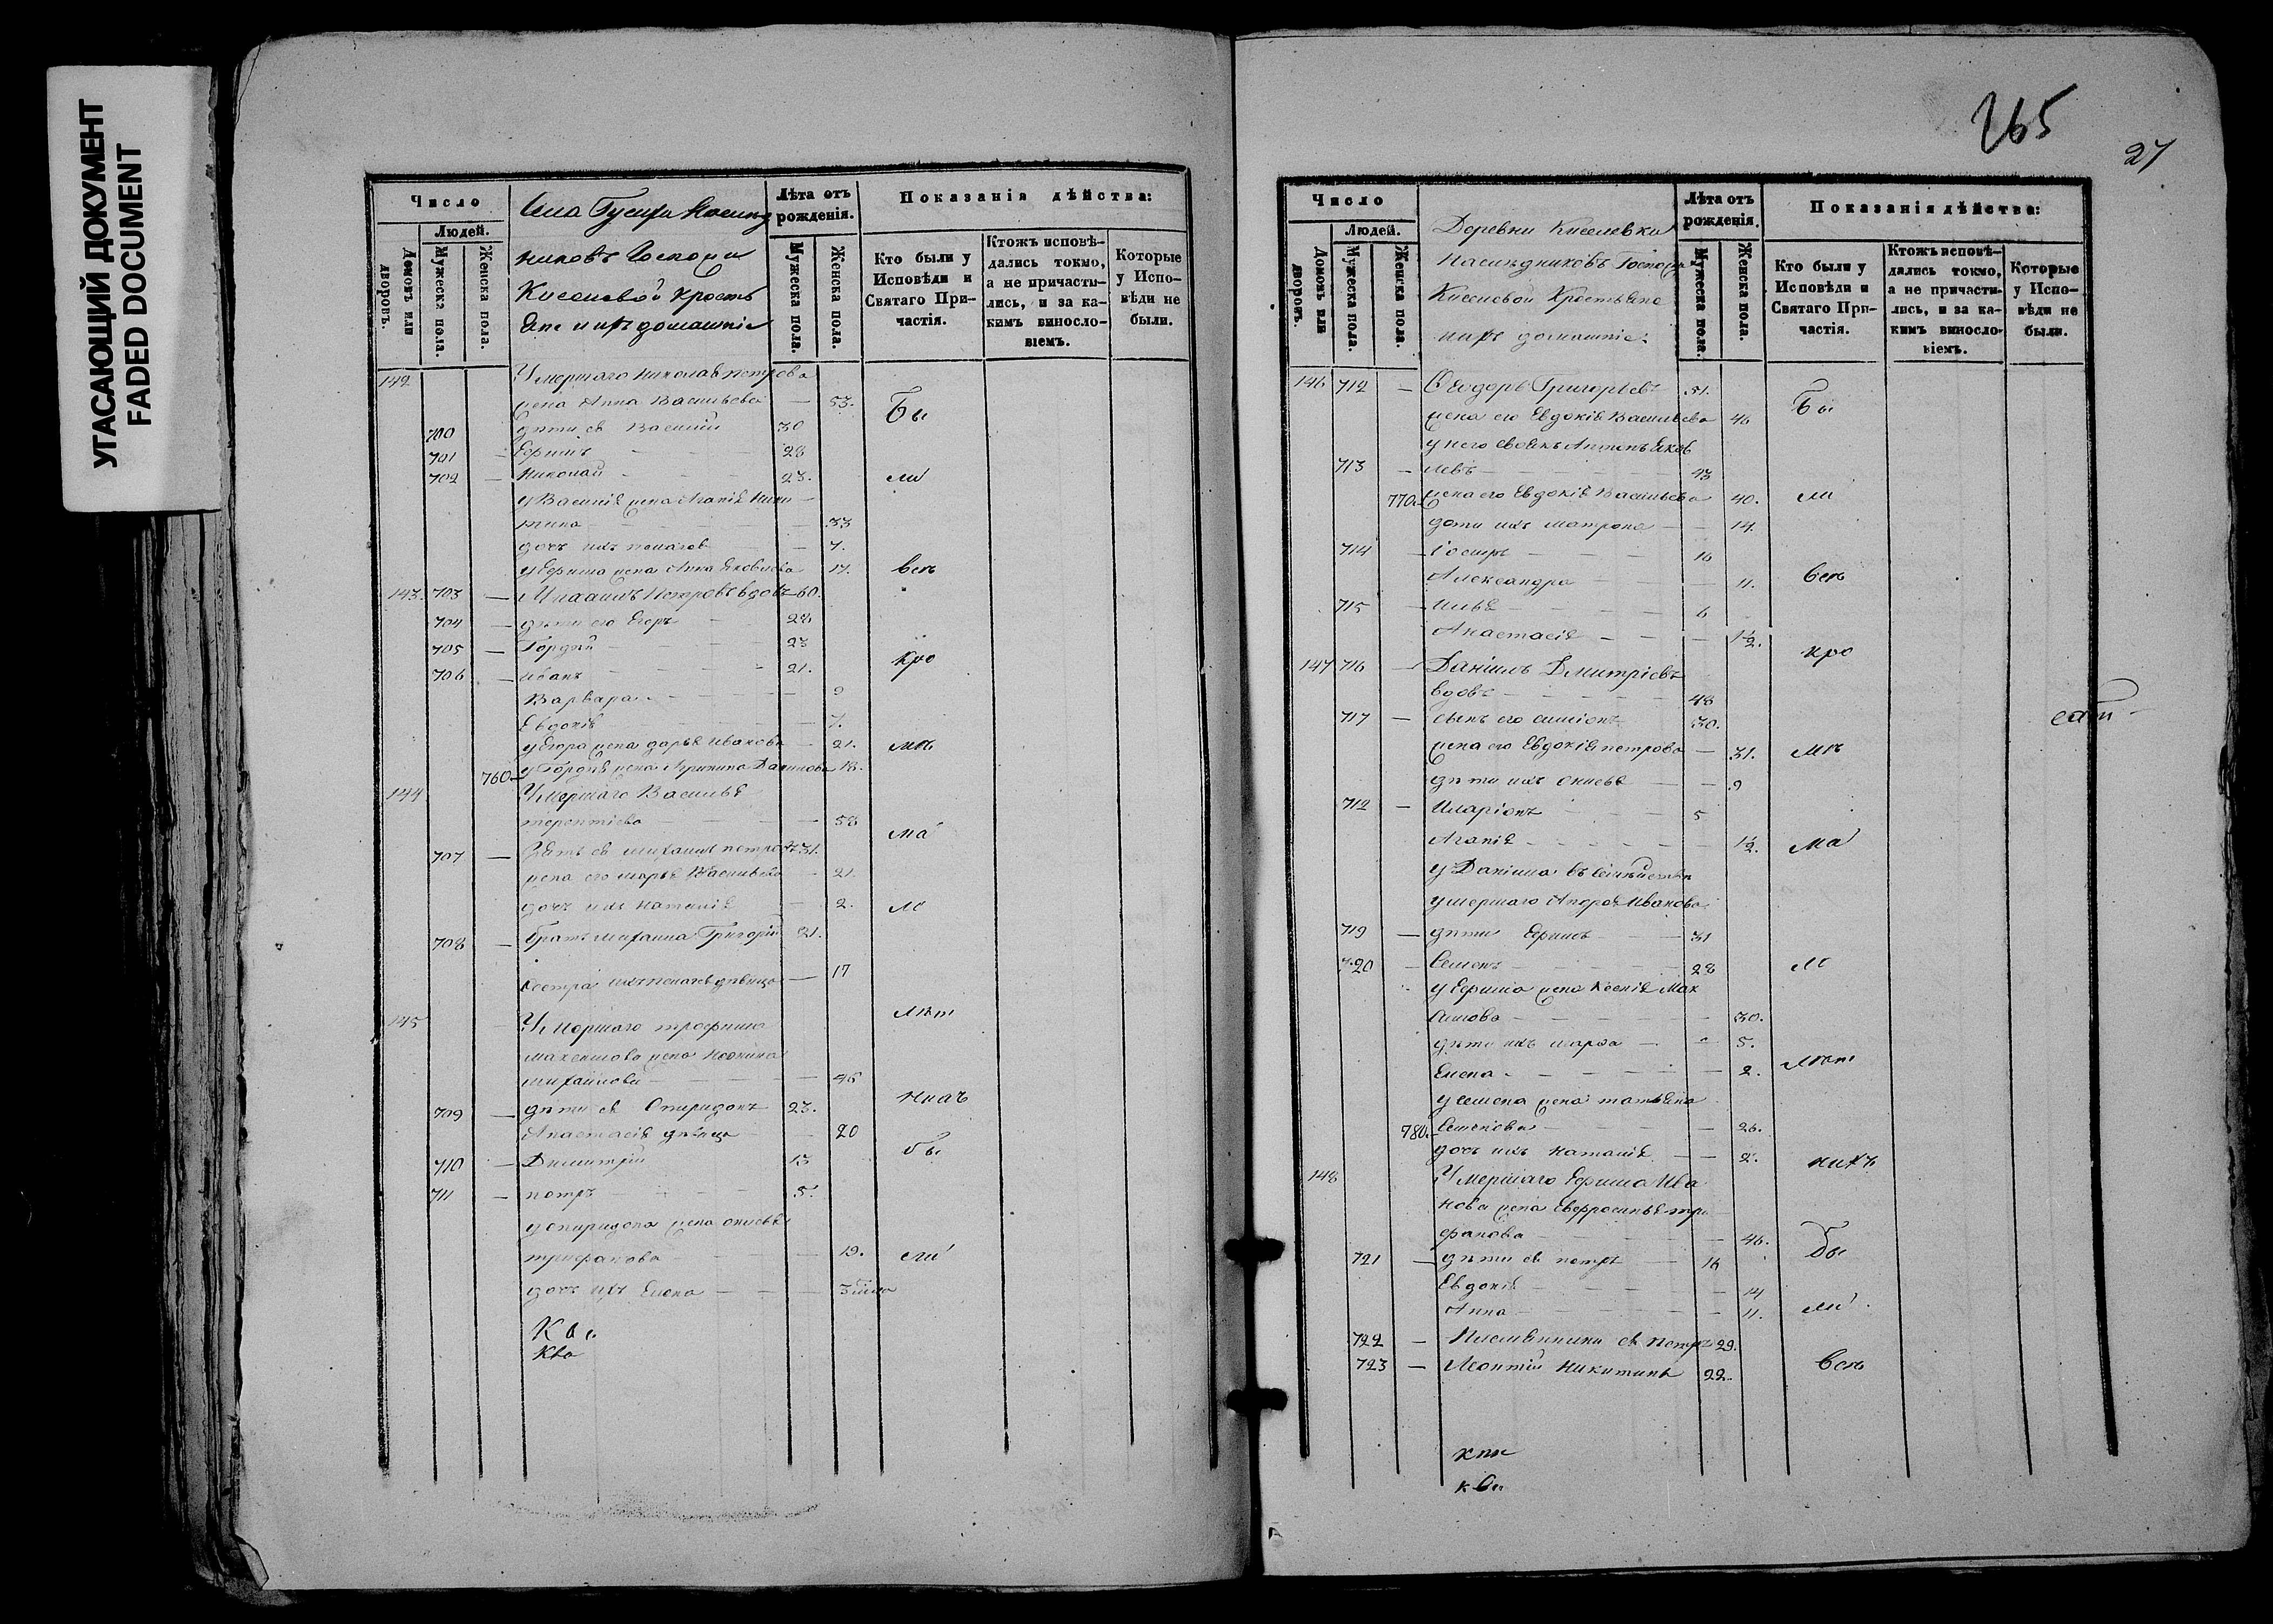 УГАСАЮЩИЙ ДОКУМЕНТ
FADED DOCUMENT
Число
Людей.
Домовъ или дворовъ.
Мужеска пола.
Женска пола.
Села
Господи
Киселевой Кресть
яне и ихъ домашнія
Лѣта отъ рожденія.
Мужеска пола.
Женска пола.
Показанія дѣйства:
Кто были у Исповѣди и Святаго Причастія.
Ктожъ исповѣ-
дались токмо,
а не причасти-
лись, и за ка-
кимъ виносло-
віемъ.
Которые
у Испо-
вѣди не
были.
142 Умершаго Николая Петрова
жена Анна Васильева — 53. Бы
700 дѣти ея Василий 30
701 — Ефимъ 28
702 — Николай 23. ли
у Василія жена Агапія Ники
тина 33
дочь ихъ Пелагея 7.
у Ефима жена Анна Яковлева 17. всѣ
143. 703 — Петровъ вдовъ 60.
704 — дѣти его Егоръ 28
705 — Гордѣй 23
706 — Иванъ 21. кро
Варвара 9
Евдокія 7.
у Егора жена Дарья Иванова — 21. мѣ
760 — у Гордѣя жена Акулина 18.
144 Умершаго Василья
Терентіева 58 ма
707 — Зять ея Михаилъ Петровъ 31.
жена его Марья Васильева — 21.
дочь ихъ Наталія — 2. ло
708 — братъ Михаила Григорій 21.
сестра ихъ дѣвица — 17
145 Умершаго Трофима лѣт
Максимова жена
Михайлова 45
709 — дѣти ея Спиридонъ 23. нихъ
Анастасія дѣвица 20
710 — Димитрій 13 бы
711 — Петръ 5.
у Спиридона жена
Трифанова 19. ли
дочь ихъ Елена
265
27
Число
Людей.
Домовъ или дворовъ.
Мужеска пола.
Женска пола.
Деревни Киселевки
наслѣдниковъ Госпожи
Киселевой Крестьяне
ихъ домашніе:
Лѣта отъ рожденія.
Мужеска пола.
Женска пола.
Показанія дѣйства:
Кто были у Исповѣди и Святаго При-
частія.
Ктожъ исповѣ-
дались токмо,
а не причасти-
лись, и за ка-
кимъ виносло-
віемъ.
Которые
у Испо-
вѣди не
были.
146 712 — Ѳеодоръ Григорьевъ 51.
жена его Евдокія Васильева 46 Бы
у него своякъ Антонъ Яков
713 — левъ 43
770. жена его Евдокія Васильева 40. ли
дѣти ихъ Матрона — 14.
714 — Іосифъ 16
Александра 11. всѣ
715 — Илья 6
Анастасія 1½.
147 716 — Даніилъ Дмитріевъ кро
вдовъ 48
717 — сынъ его Симеонъ 30.
жена его Евдокія Петрова — 31. мѣ
дѣти ихъ 9
712 — Иларіонъ 5
Агапія 1½. ма
у Даніила въ
умершаго Андрея Иванова
719 — дѣти Ефимъ 31
720 — Семенъ 28 ло
у Ефима жена Ксенія Мак
симова 30.
дѣти ихъ Марѳа 5.
Елена 2. лѣт
у Семена жена Татьяна
780. Семенова 26.
дочь ихъ Наталія 2. нихъ
148 Умершаго Ефима Ива
нова жена Евфросинья Три
фанова 46. бы
721 — дѣти ея Петръ 16
Евдокія 14
Анна 11. ли
722 — Племянники ея Петръ 29.
723 — Леонтій Никитины 22. всѣ